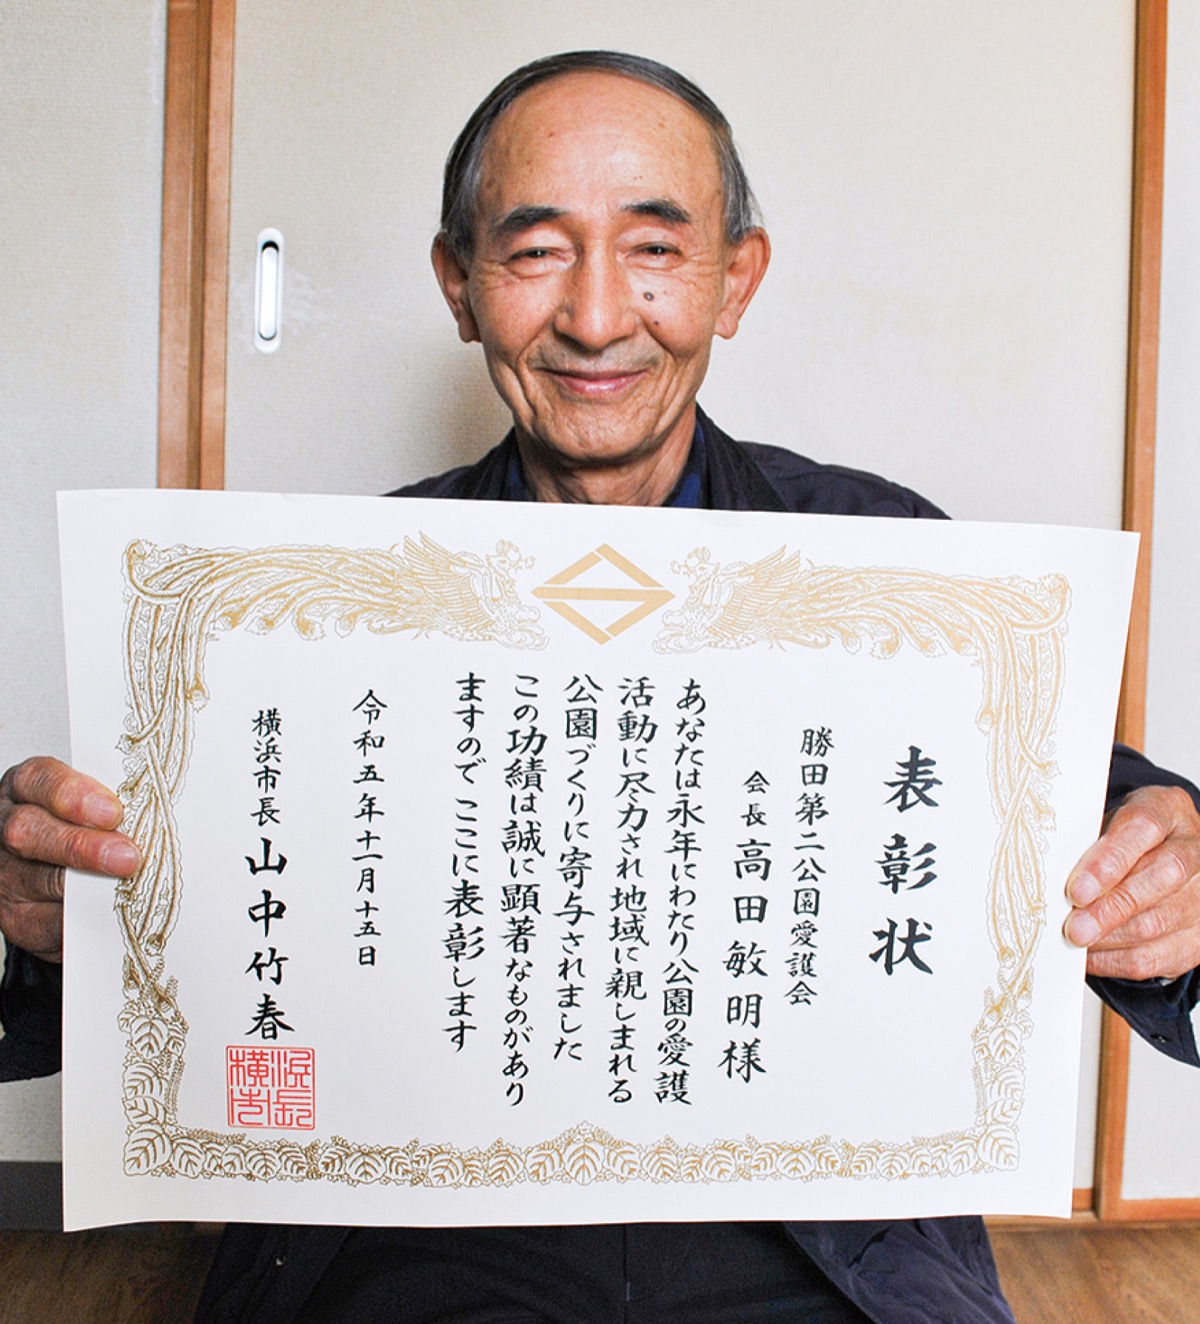 表彰状
勝田第二公園愛護会
会長 高田敏明様
あなたは永年にわたり公園の愛護
活動に尽力され地域に親しまれる
公園づくりに寄与されました
この功績は誠に顕著なものがあり
ますので ここに表彰します
令和五年十一月十五日
横浜市長 山中竹春
横浜市長